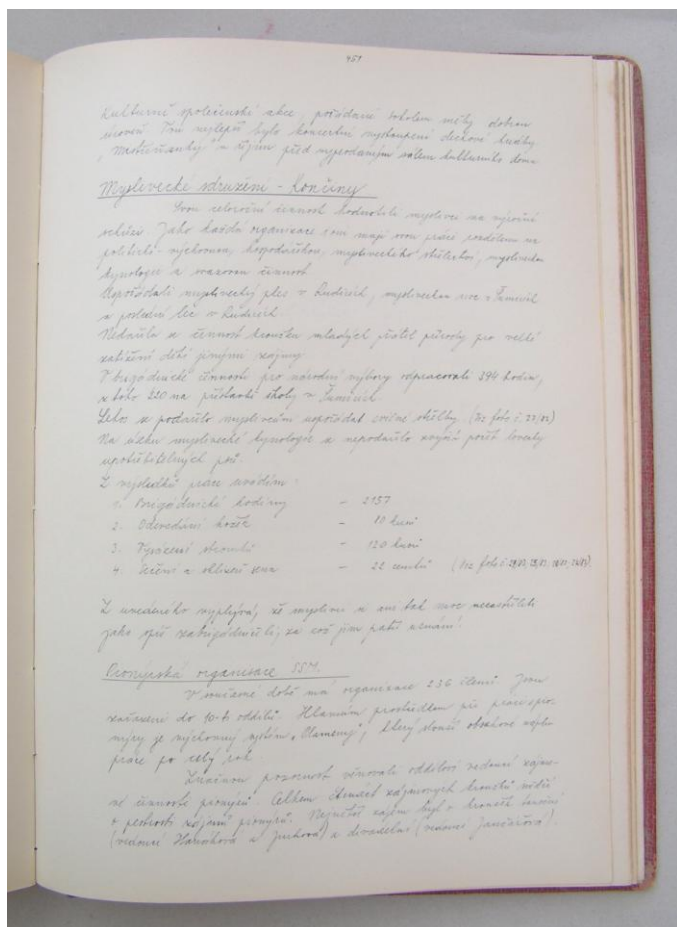 451
Kulturně společenské akce, pořádané Sokolem měly dobrou
úroveň. Tou nejlepší bylo koncertní vystoupení dechové hudby
„Mistříňanky" v říjnu před vyprodaným sálem kulturního domu
Myslivecké sdružení - Končiny
Svou celoroční činnost hodnotili myslivci na výroční
schůzi. Jako každá organizace i oni mají svou práci rozdělenu na
politicko-výchovnou, hospodářskou, mysliveckého střelectví, mysliveckou
kynologii a svazovou činnost
Uspořádali myslivecký ples v Ludicích, mysliveckou noc v
a poslední leč v Ludicích.
Nedařila se činnost kroužku mladých přátel přírody pro velké
zatížení dětí jinými zájmy
V brigádnické činnosti pro národní výbory odpracovali 394 hodin,
z toho 220 na přístavbě školy v
Letos se podařilo myslivcům uspořádat cvičné střelby (viz foto č. 27/83)
Na úseku myslivecké kynologie se nepodařilo zvýšit počet lovecky
upotřebitelných psů.
Z výsledků práce uvádím:
1. Brigádnické hodiny - 2157
2. Odevzdání kožek - 10 kusů
3. stromků - 120 kusů
4. Sečení a sklizeň sena - 22 centů (viz foto č.
Z uvedeného vyplývá, že myslivci se ani tak moc nenastříleli
jako spíš nabrigádničili, za což jim patří uznání.
Pionýrská organisace SSM.
V současné době má organizace 236 členů. Jsou
zařazeni do 10-ti oddílů. Hlavním prostředkem při práci s pio-
nýry je výchovný systém „Plameny", který slouží obsahové náplni
práce po celý rok
Značnou pozornost věnovali oddíloví vedoucí zájmo-
vé činnosti pionýrů. Celkem čtrnáct zájmových kroužků svědčí
o pestrosti zájmů pionýrů. Největší zájem byl o kroužek taneční
(vedoucí a ) a divadelní (vedoucí Jančářová).